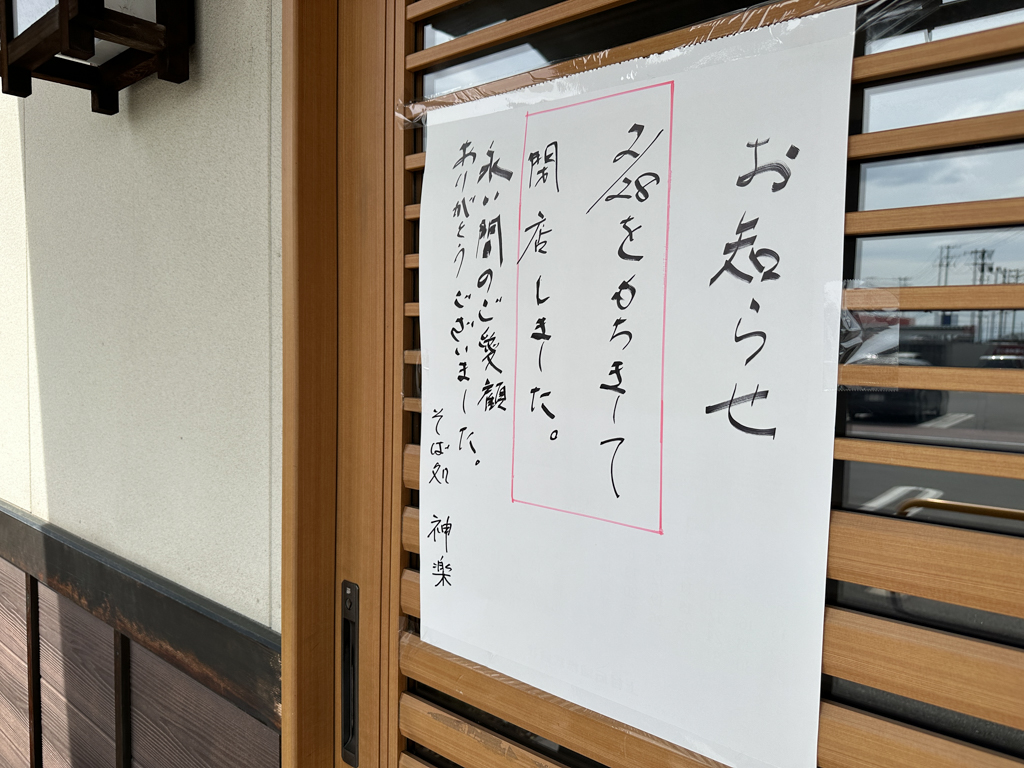 お知らせ
2/28をもちまして
閉店しました。
永い間のご愛顧
ありがとうございました。
そば処 神楽